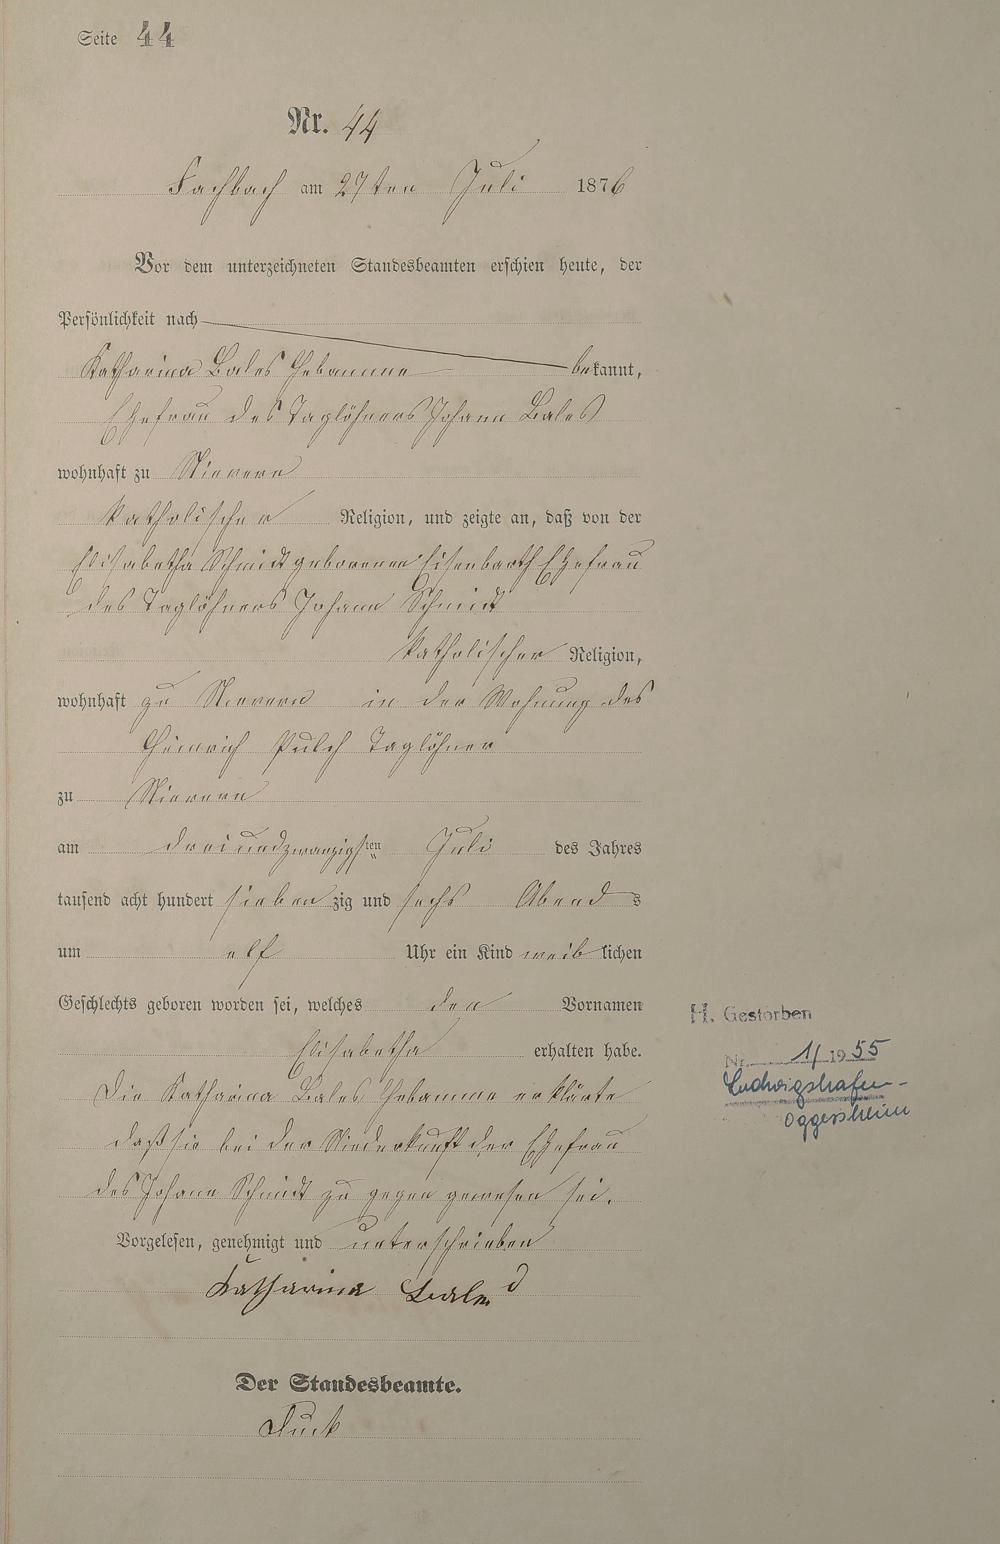 Seite 44
Nr. 44
Fachbach am 27ten Juli 1876
Vor dem unterzeichneten Standesbeamten erschien heute, der
Persönlichkeit nach
Katharina Bales Hebamme bekannt,
Ehefrau des Taglöhners Johann Bales
wohnhaft zu Nievern
katholischer Religion, und zeigte an, daß von der
Elisabetha Schmidt geborenen Eisenbarth Ehefrau
des Taglöhners Johann Schmidt
katholischer Religion,
wohnhaft zu Nievern in der Wohnung des
Heinrich Pulch Taglöhner
zu Nievern
am dreiundzwanzigsten Juli des Jahres
tausend acht hundert siebenzig und sechs Abends
um elf Uhr ein Kind weiblichen
Geschlechts geboren worden sei, welches den Vornamen
Elisabetha erhalten habe.
Die Katharina Bales Hebamme erklärte
daß sie bei der Niederkunft der Ehefrau
des Johann Schmidt zu gegen gewesen sei.
Vorgelesen, genehmigt und unterschrieben
Katharina Bales
Der Standesbeamte.
H. Gestorben
Nr. 1/1955
Ludwigshafen-
Oggersheim